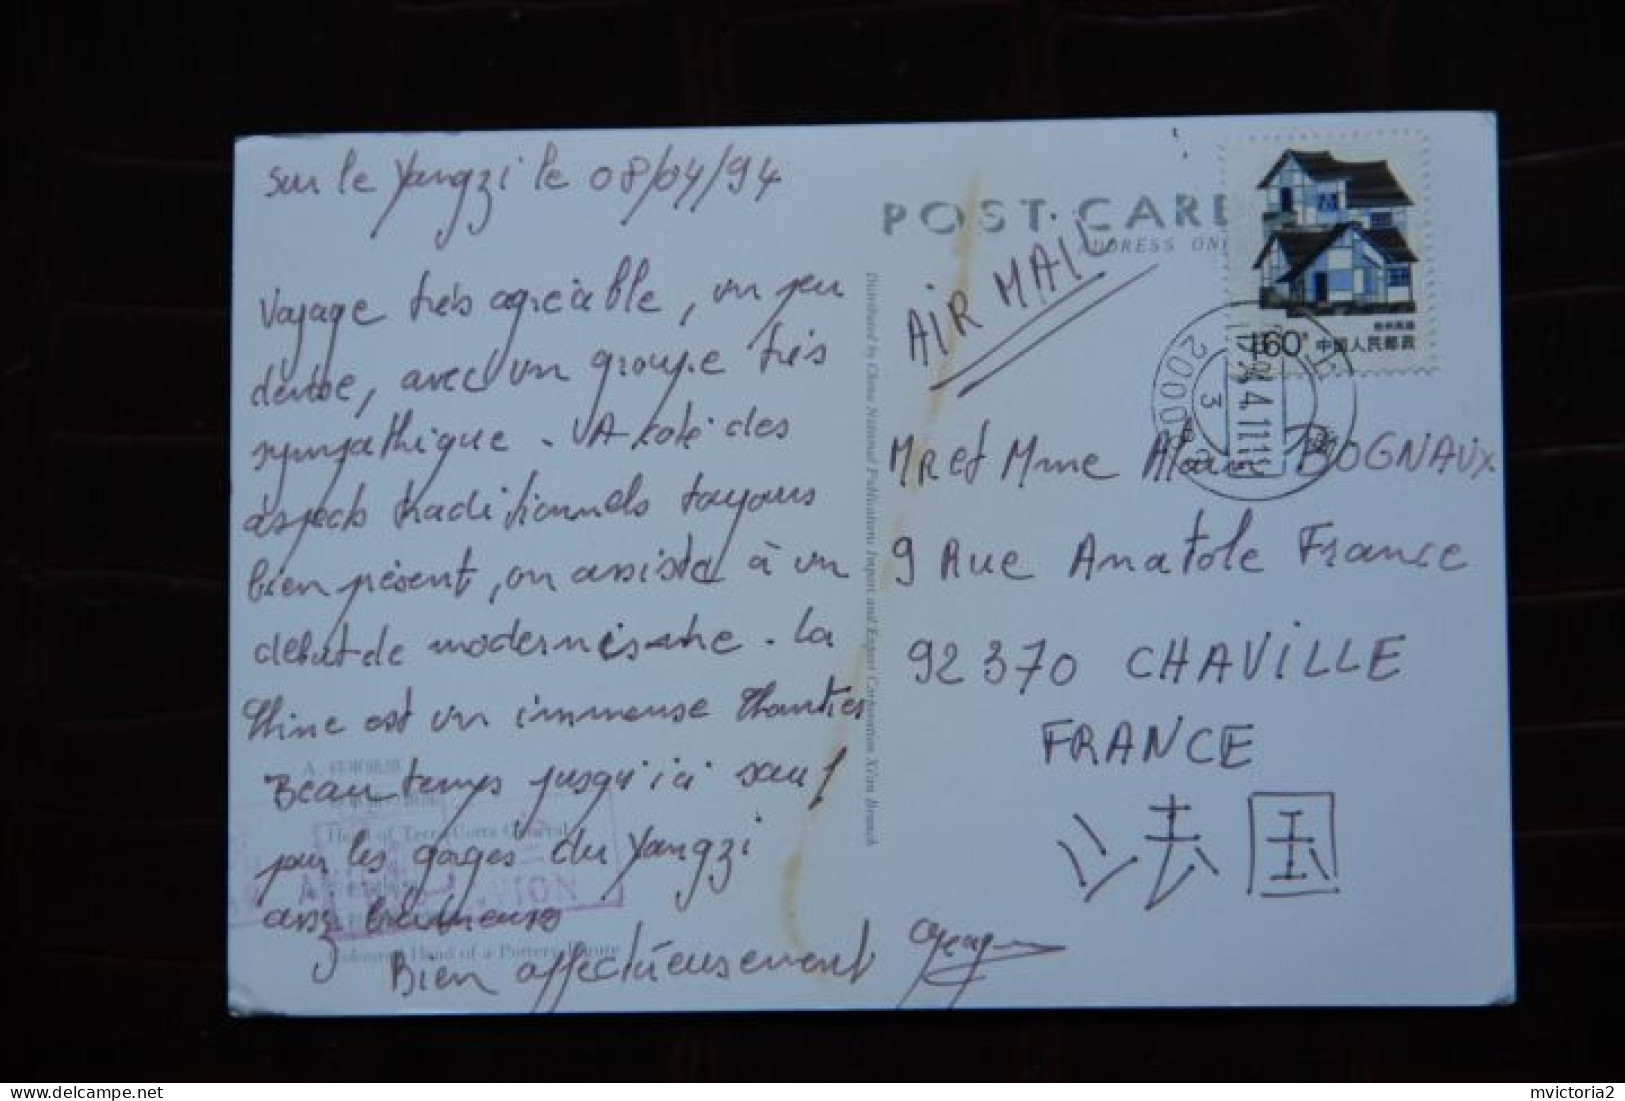 sur le Yangzi le 08/04/94
Voyage très agréable, un peu
dense, avec un groupe très
sympathique. A côté des
aspects traditionnels toujours
bien présent, on assiste à un
début de modernisme. La
Chine est un immense Chantier
Beau temps jusqu'ici sauf
pour les gorges du Yangzi
assez brumeuses
Bien affectueusement
POST CARD
ADDRESS ONLY
AIR MAIL
160 中国人民邮政
Mr et Mme Alain BOGNAUX
9 Rue Anatole France
92370 CHAVILLE
FRANCE
法国
Distributed by China National Publications Import and Export Corporation Xi'an Branch
Head of Terra Cotta General
Head of a Pottery Figure
AVION
delcampe.net
mvictoria2